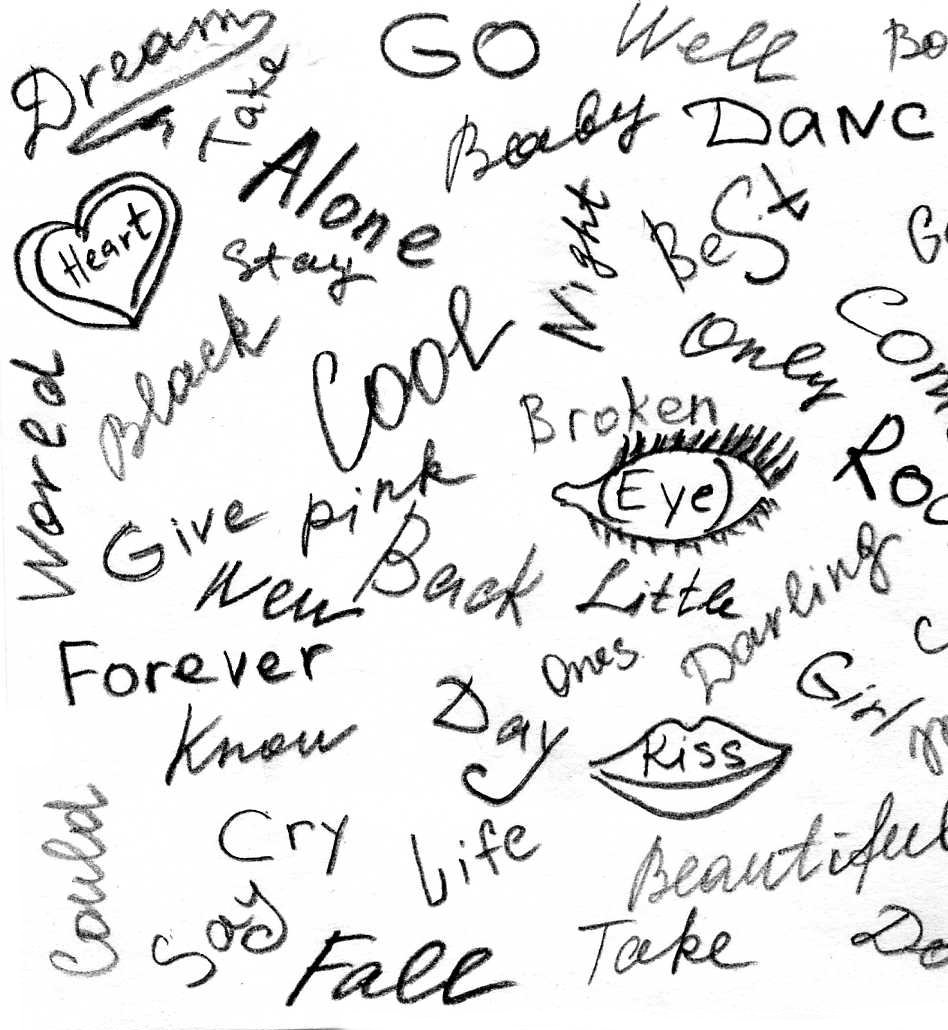 Dream
Take
GO
Well
Bo
Baby
DANC
Alone
Heart
Stay
Night
BeST
Ge
Black
Cool
Only
Com
Wored
Broken
Eye
Roc
Give
pink
New
Back
Little
Darling
Forever
Ones
Girl
Know
Day
Kiss
Could
Cry
Life
Beautiful
Say
Fall
Take
Do